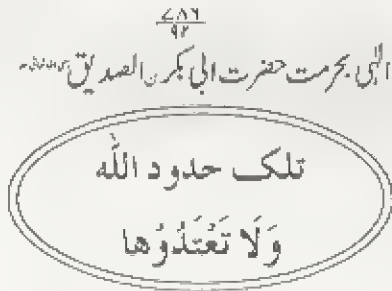 ۷۸۶
۹۲
الہٰی بحرمت حضرت ابی بکرن الصدیق
تلک حدود اللّٰه
وَلَا تَعْتَدُوْها